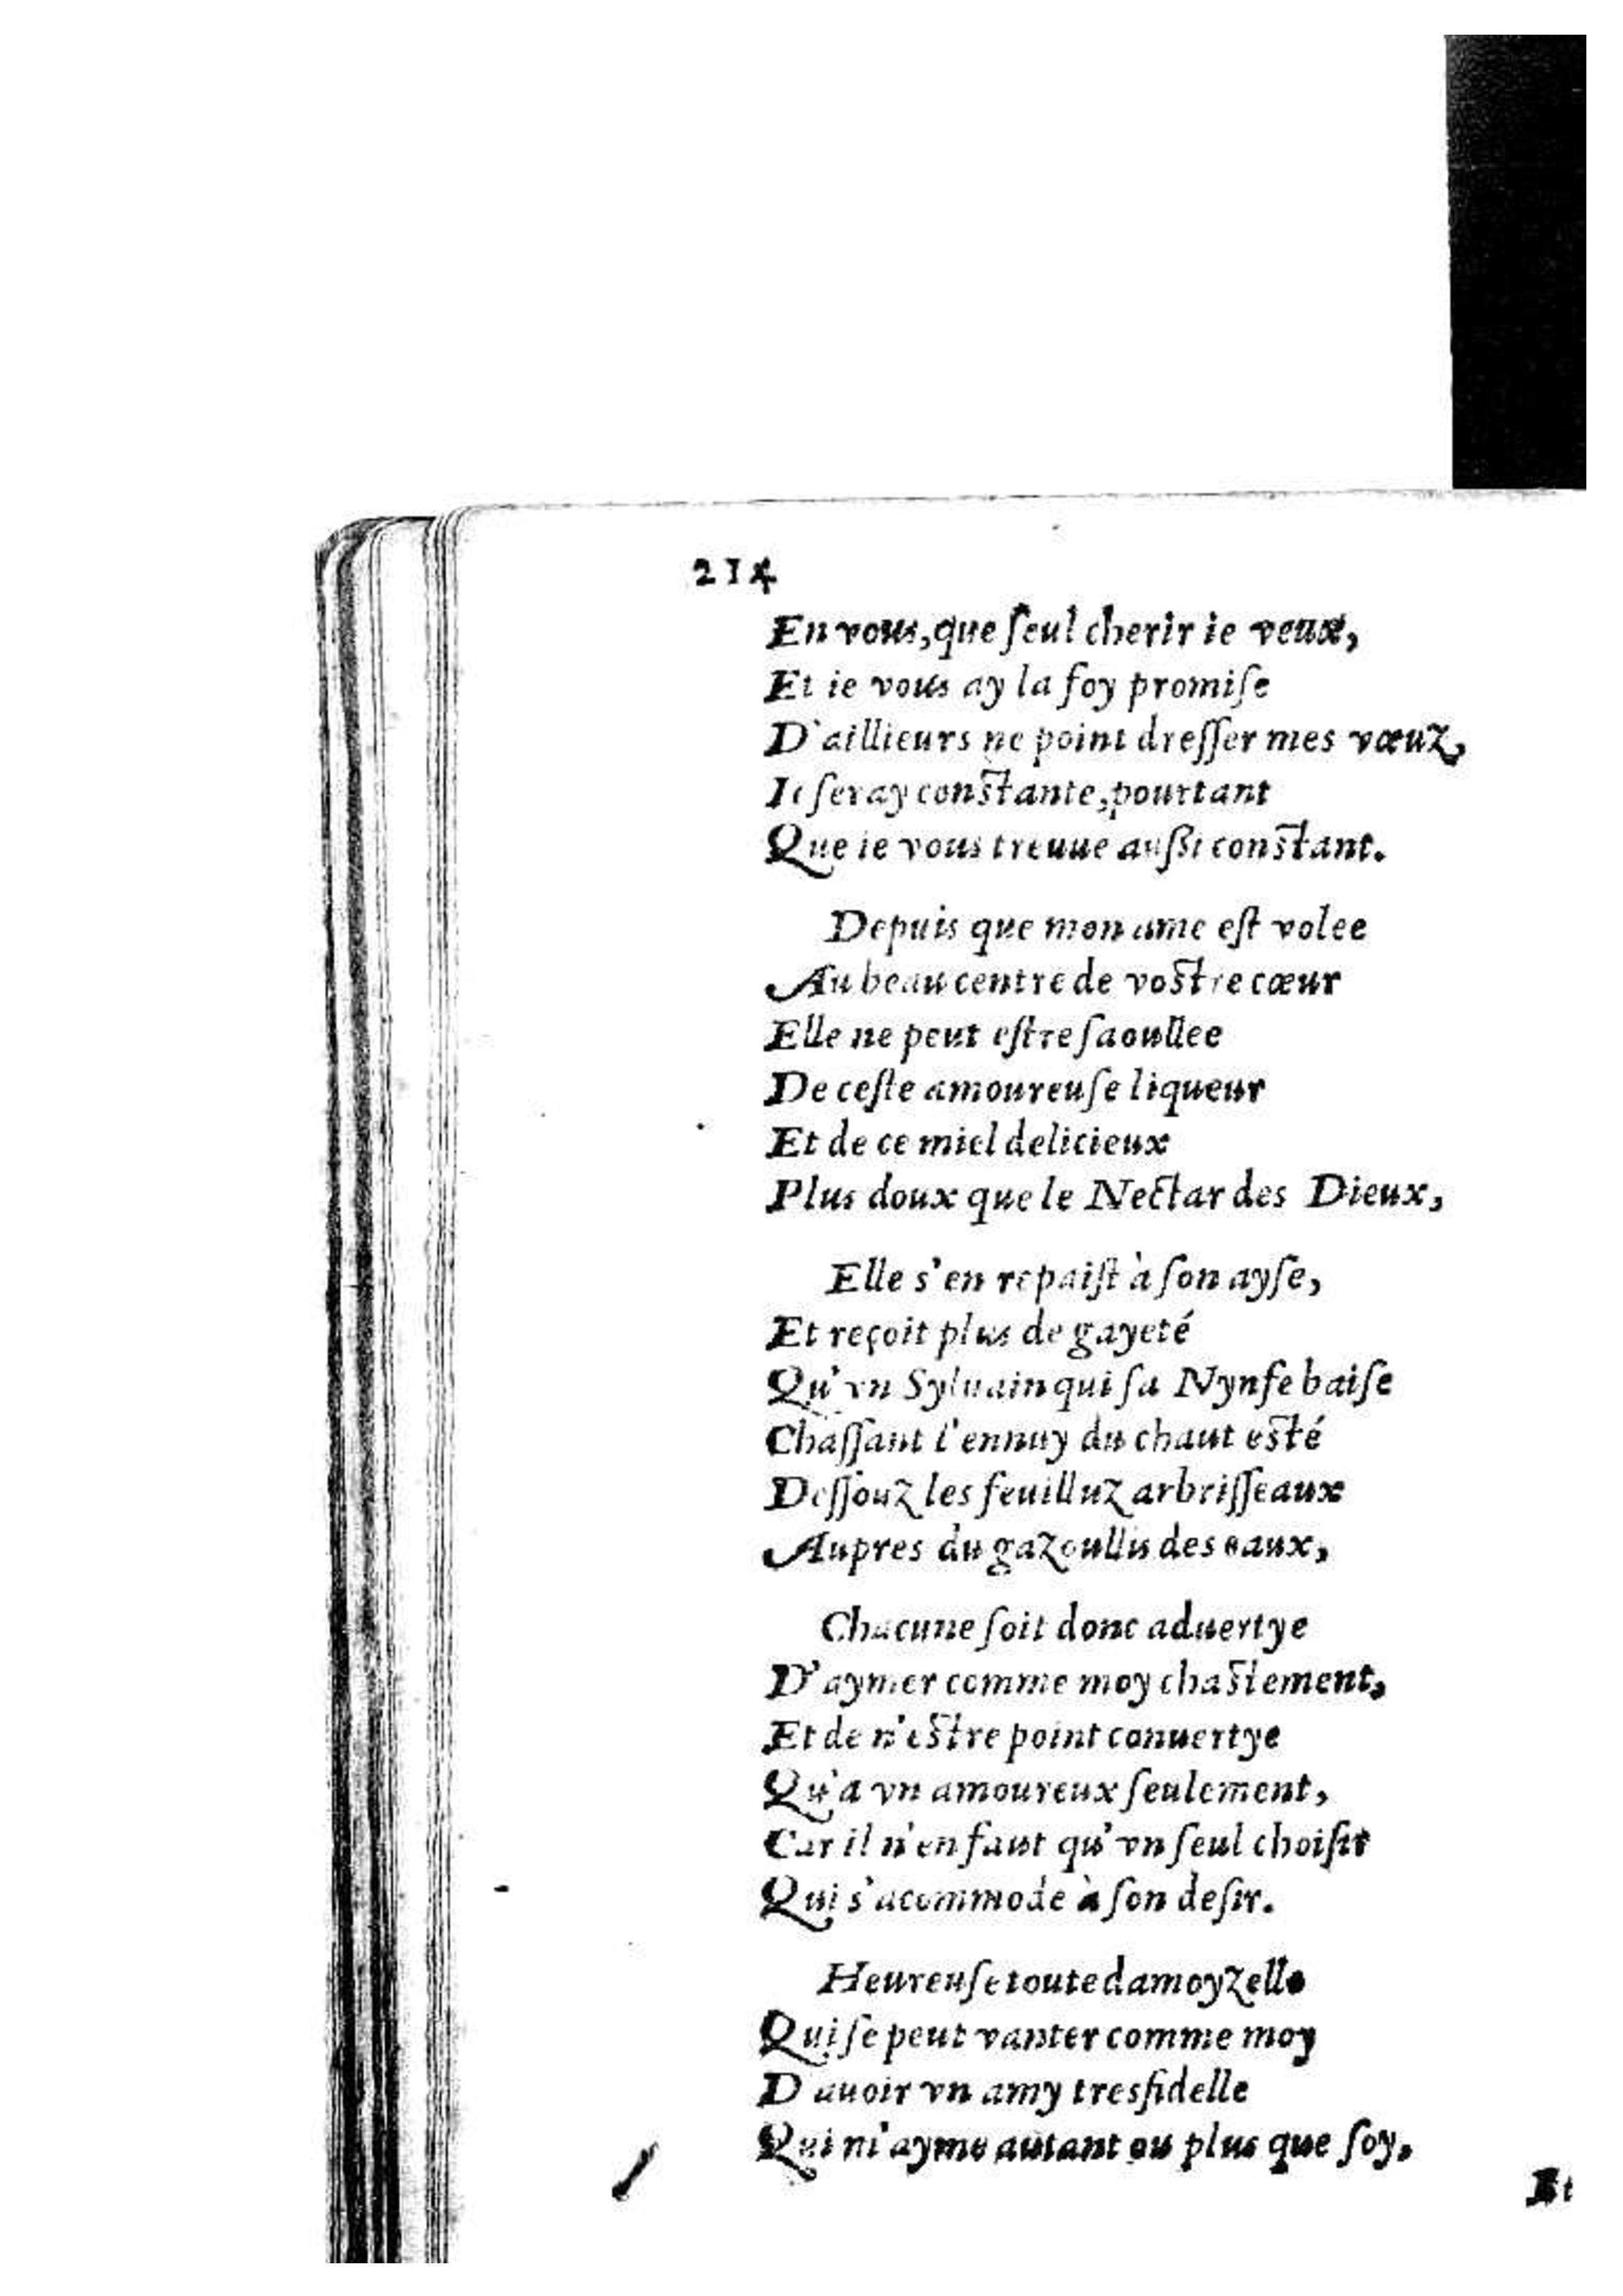 214
En vous, que ſeul cherir ie veux,
Et ie vous ay la foy promiſe
D'aillieurs ne point dreſſer mes vœuz,
Ie ſeray conſtante, pourtant
Que ie vous treuue außi conſtant.
Depuis que mon ame eſt volee
Au beau centre de voſtre cœur
Elle ne peut eſtre ſaoullee
De ceſte amoureuſe liqueur
Et de ce miel delicieux
Plus doux que le Nectar des Dieux,
Elle s'en repaiſt à ſon ayſe,
Et reçoit plus de gayeté
Qu'vn Syluain qui ſa Nynfe baiſe
Chaſſant l'ennuy du chaut eſté
Deſſouz les feuilluz arbriſſeaux
Aupres du gazoullis des eaux,
Chacune ſoit donc aduertye
D'aymer comme moy chaſtement,
Et de n'eſtre point conuertye
Qu'a vn amoureux ſeulement,
Car il n'en faut qu'vn ſeul choiſir
Qui s'acommode à ſon deſir.
Heureuſe toute damoyzelle
Qui ſe peut vanter comme moy
D auoir vn amy tresfidelle
Qui m'ayme autant ou plus que ſoy,
Et